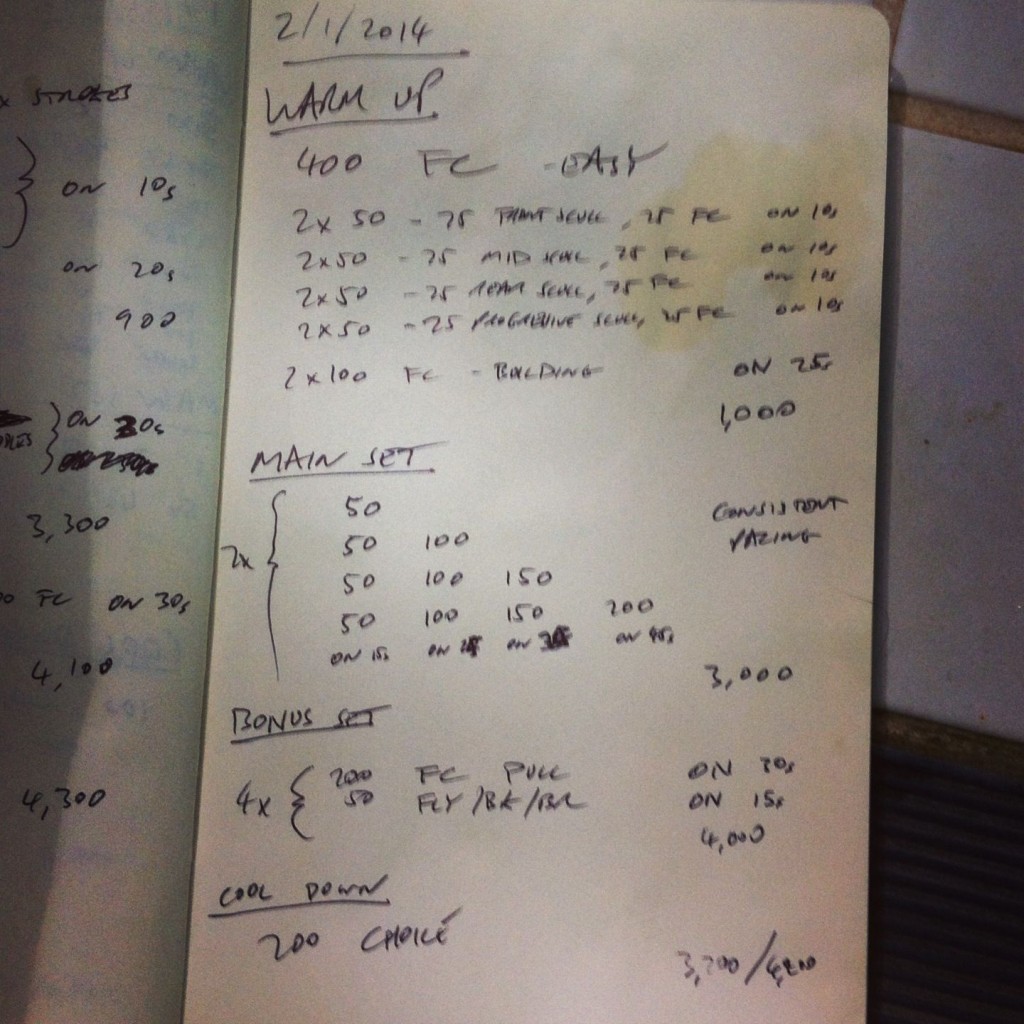 STROKES
ON 10s
ON 20s
900
ON 20s
3,300
FC ON 30s
4,100
4,300
2/1/2014
WARM UP
400 FC - EASY
2 x 50 - 25 FRONT SCULL, 25 FC ON 10s
2 x 50 - 25 MID SCULL, 25 FC ON 10s
2 x 50 - 25 REAR SCULL, 25 FC ON 10s
2 x 50 - 25 PROGRESSIVE SCULL, 25 FC ON 10s
2 x 100 FC - BUILDING ON 25s
1,000
MAIN SET
2x { 50 CONSISTENT
50 100 PACING
50 100 150
50 100 150 200
ON 15s ON ON ON 45s
3,000
BONUS SET
4x { 200 FC PULL ON 30s
50 FLY/BK/BR ON 15s
4,000
COOL DOWN
200 CHOICE
3,200/4,200